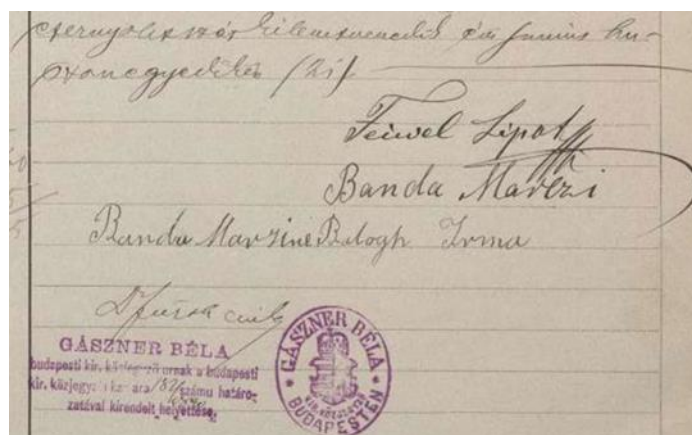 ezernyolczszáz kilenczvenedik évi junius hu-
szonegyedikén (21)
Feiwel Lipót
Banda Marczi
Banda Marcziné Balogh Irma
GÁSZNER BÉLA
budapesti kir. közjegyző urnak a budapesti
kir. közjegyzői kamara számu határo-
zatával kirendelt helyettese.
GÁSZNER BÉLA
KIR. KÖZJEGYZŐ
BUDAPESTEN